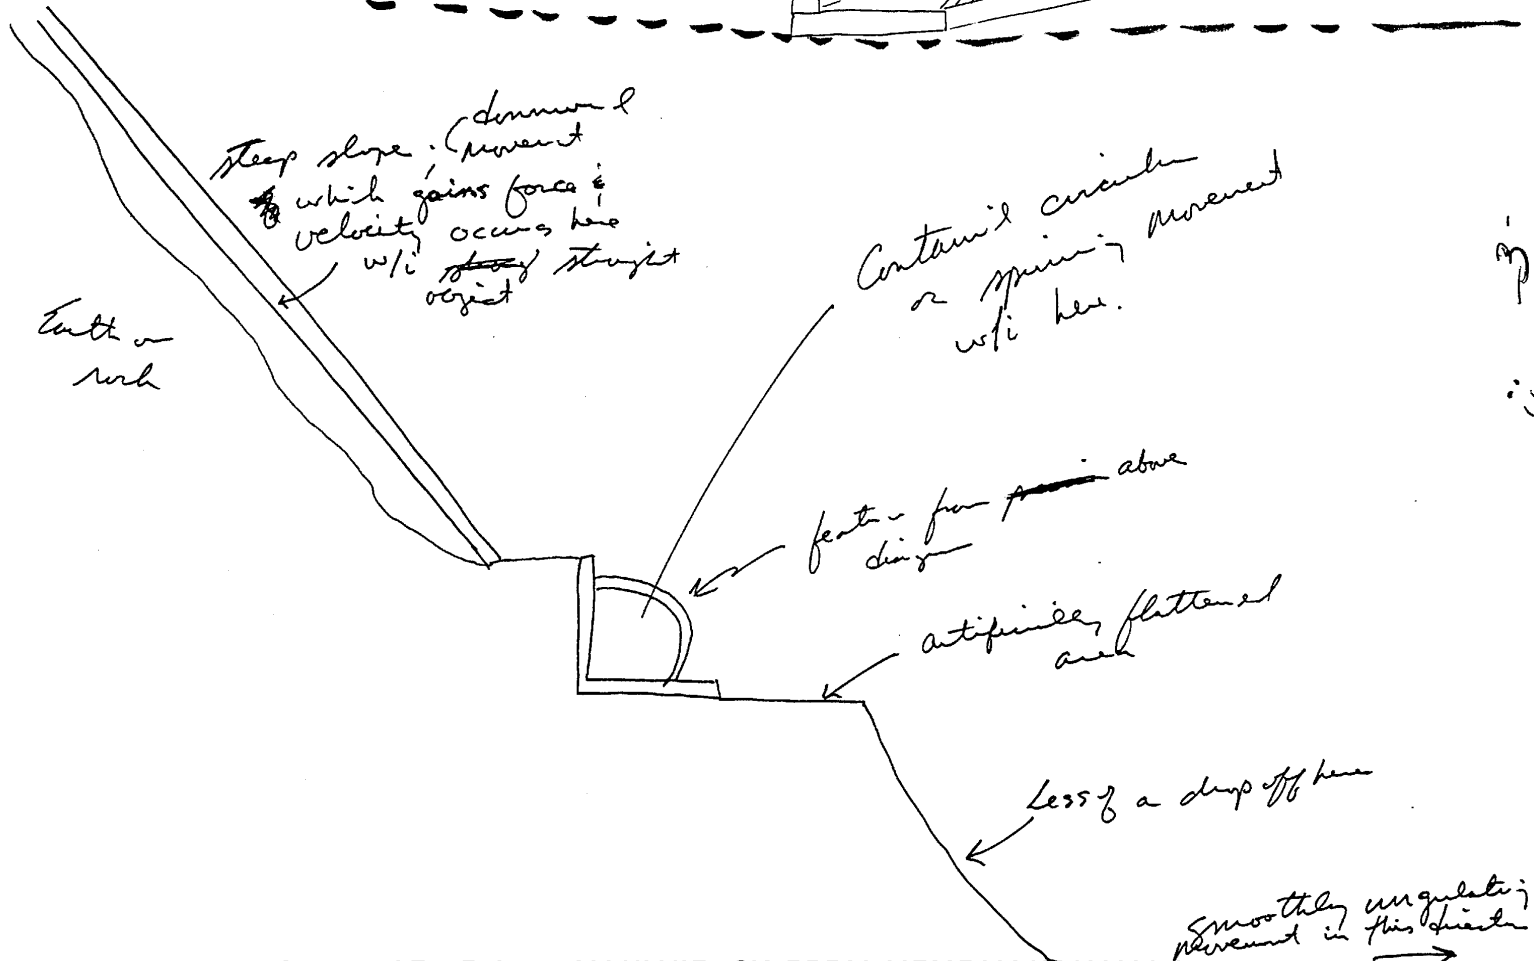 steep slope. (downward
movement
which gains force &
velocity occurs here
w/i straight
object
Earth or
rock
Contained circular
or spinning movement
w/i here.
feature from above
diagram
artificially flattened
area
Less of a drop off here
smoothly ungulating
movement in this direction